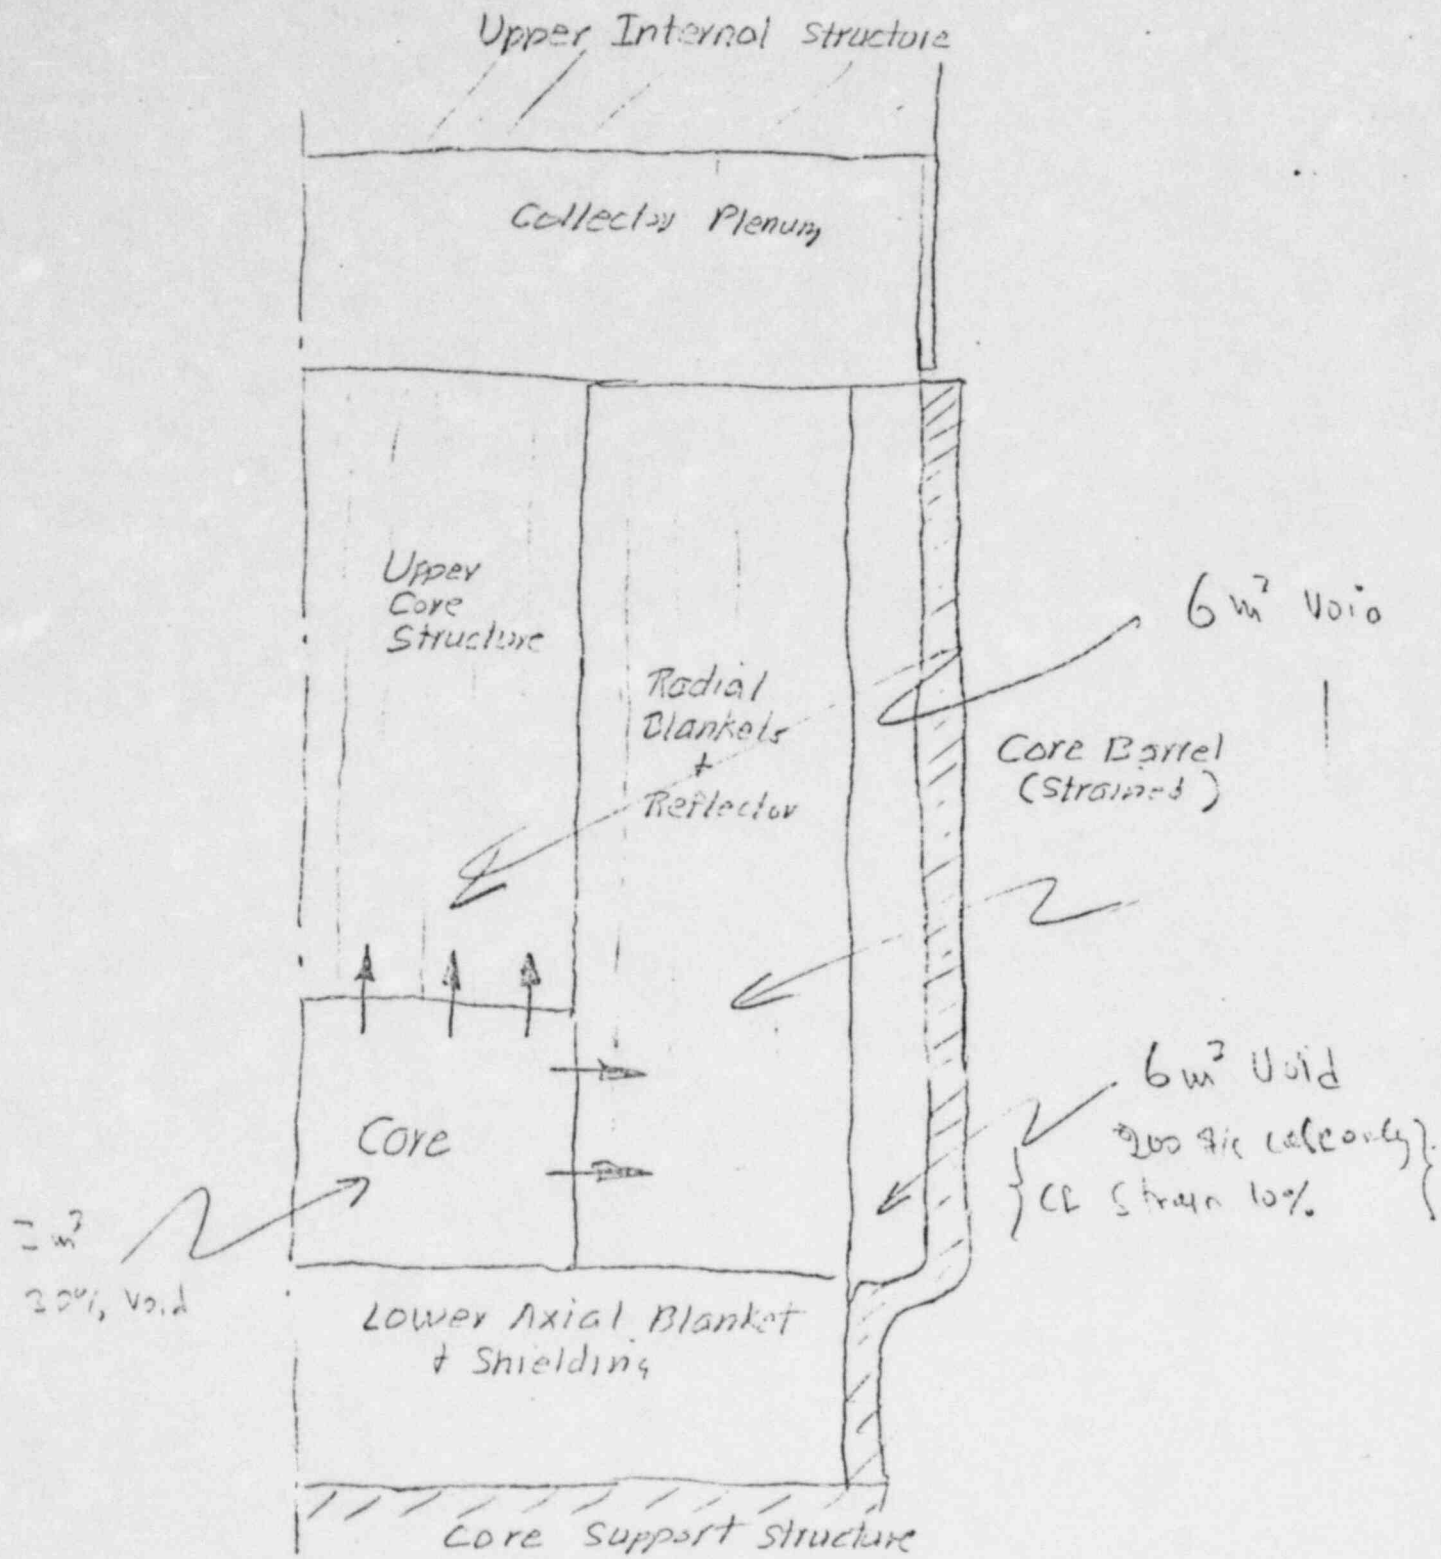 Upper Internal Structure
Collector Plenum
Upper
Core
Structure
Radial
Blankets
+
Reflector
6 m³ Void
Core Barrel
(Strained)
Core
6 m³ Void
200
Strain 10%
m³
30% Void
Lower Axial Blanket
+ Shielding
Core Support Structure